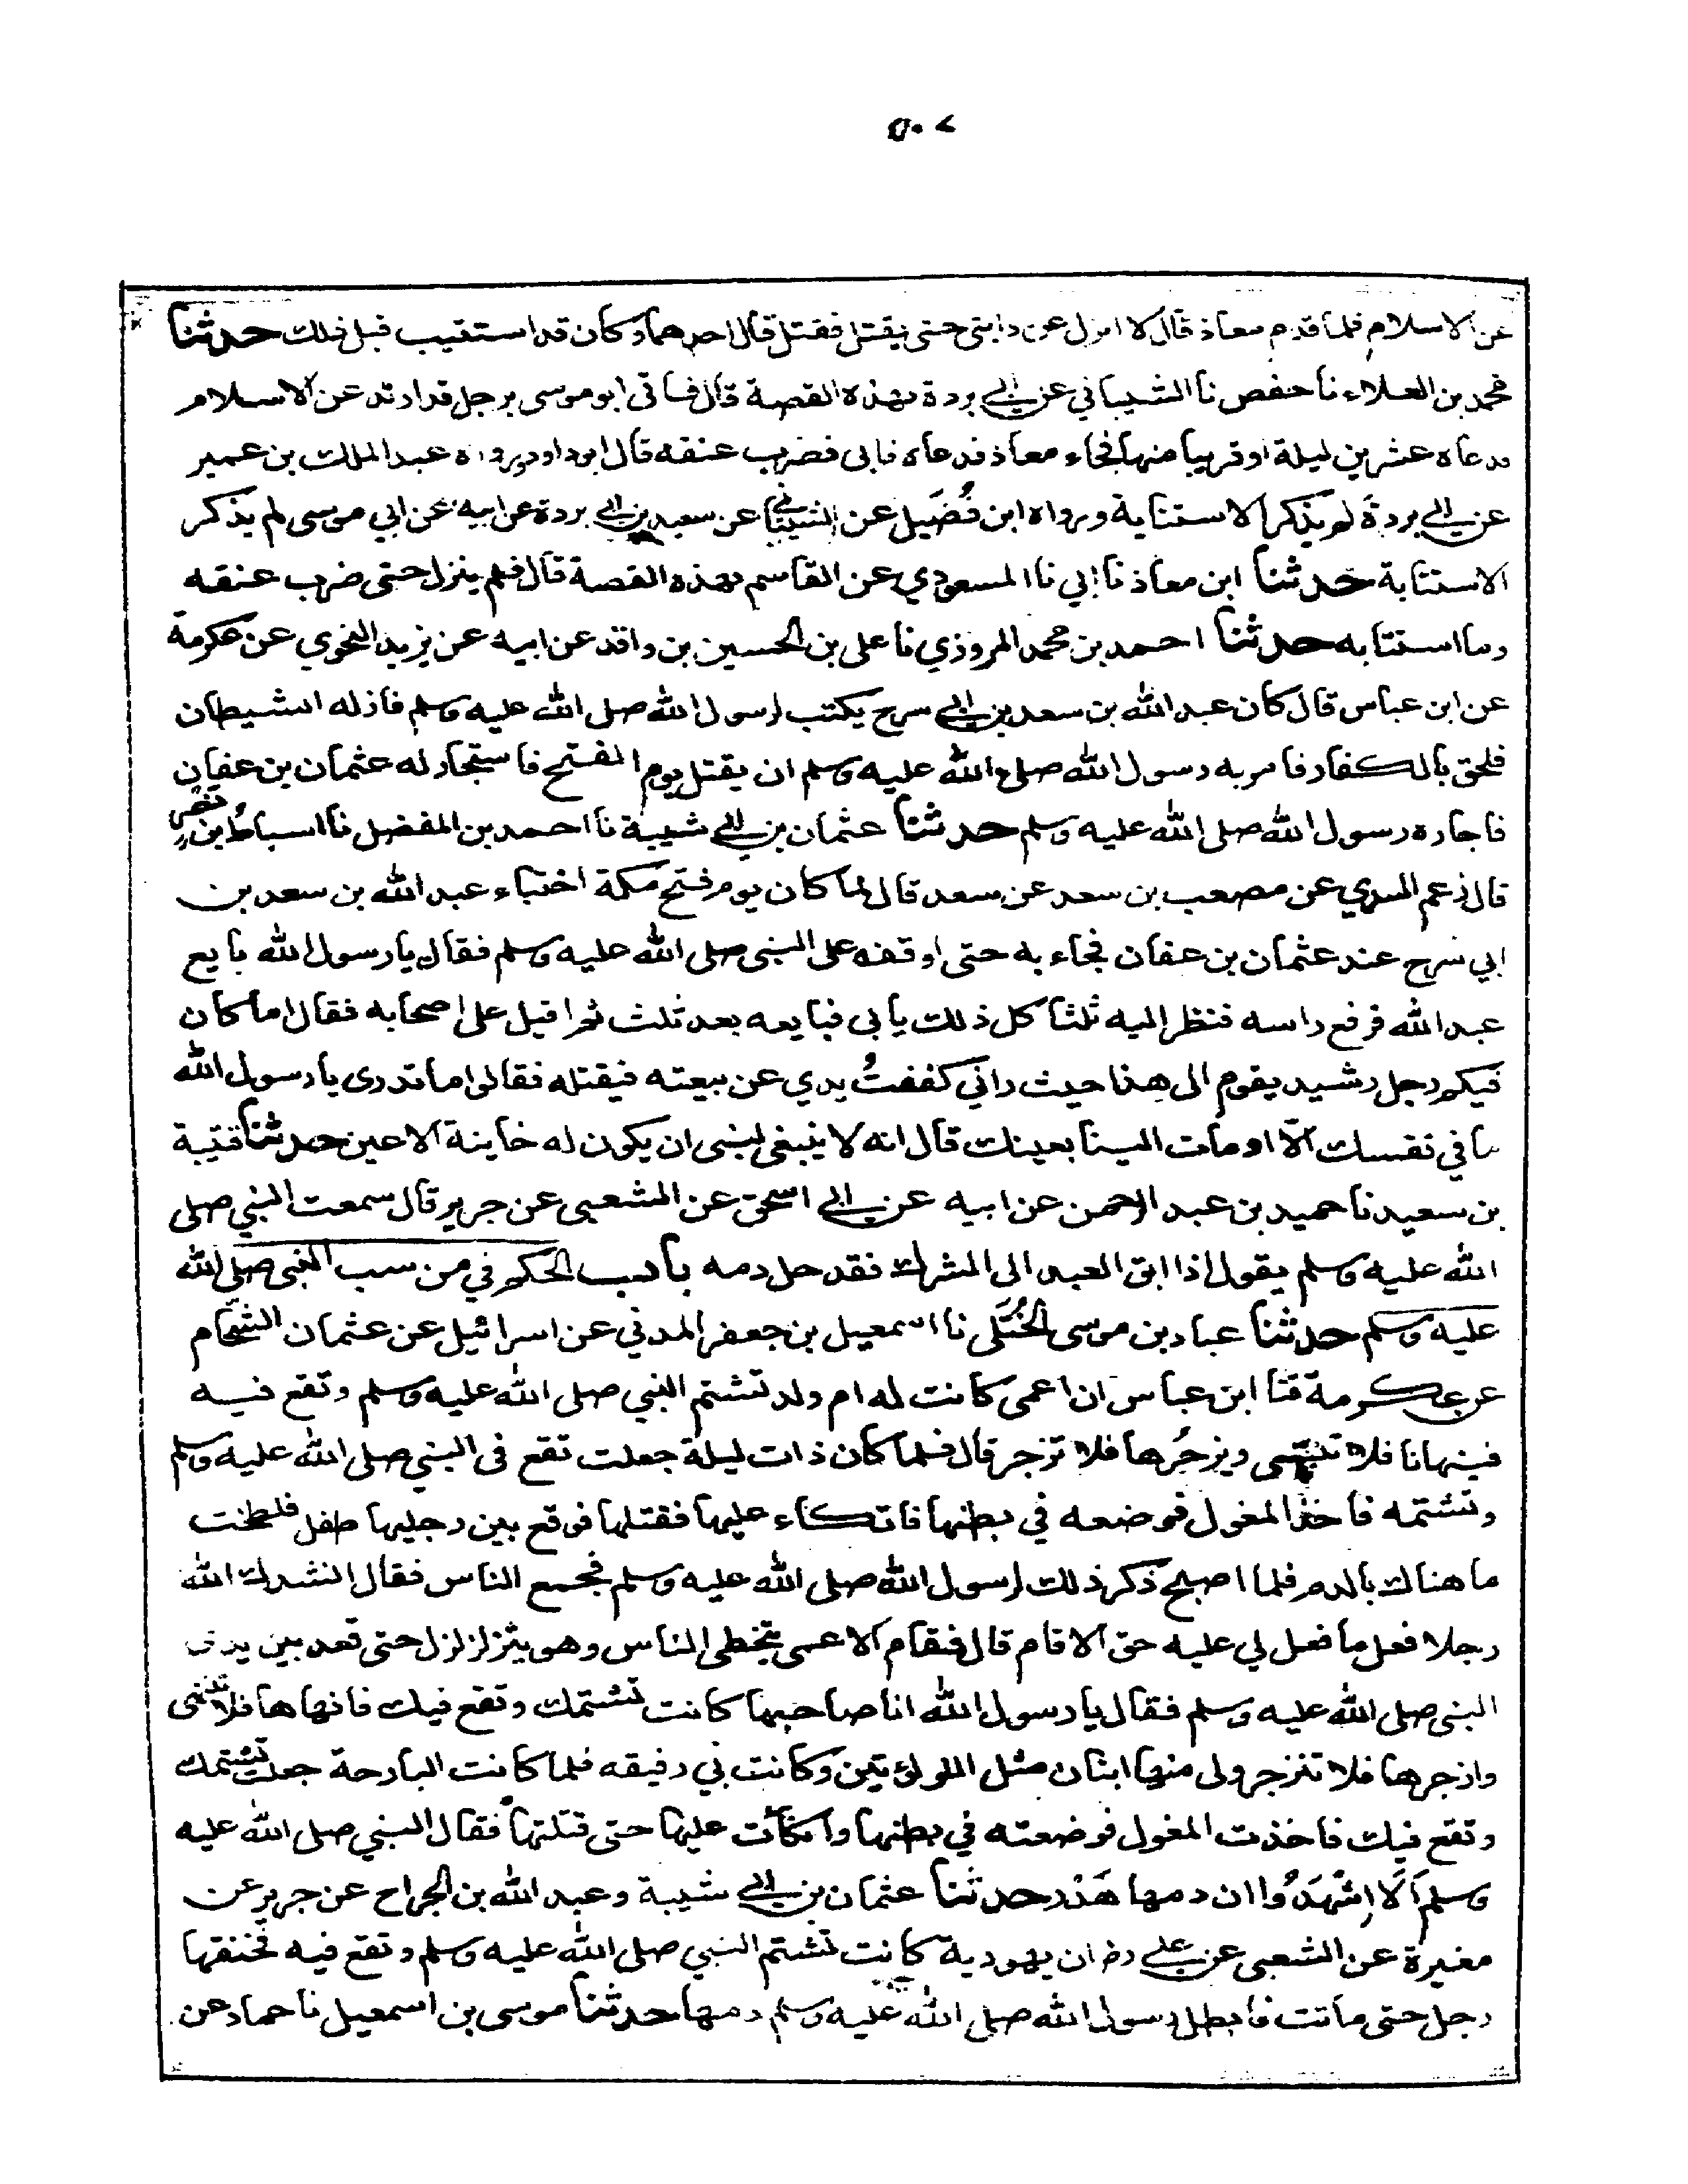 ٥٠٧
عن الاسلام فلما قدم معاذ قال لا انزل عن دابتي حتى يقتل فقتل قال احدهما وكان قد استتيب قبل ذلك حدثنا
محمد بن العلاء نا حفص نا الشيباني عن ابي بردة بهذه القصة قال فاتى ابو موسى برجل قد ارتد عن الاسلام
فدعاه عشرين ليلة او قريبا منها فجاء معاذ فدعاه فابى فضرب عنقه قال ابو داود ورواه عبد الملك بن عمير
عن ابي بردة لم يذكر الاستتابة ورواه ابن فُضَيل عن الشيباني عن سعيد بن ابي بردة عن ابيه عن ابي موسى لم يذكر
الاستتابة حدثنا ابن معاذ نا ابي نا المسعودي عن القاسم بهذه القصة قال فلم ينزل حتى ضرب عنقه
وما استتابه حدثنا احمد بن محمد المروزي نا على بن الحسين بن واقد عن ابيه عن يزيد النحوي عن عكرمة
عن ابن عباس قال كان عبد الله بن سعد بن ابي سرح يكتب لرسول الله صلى الله عليه وسلم فازله الشيطان
فلحق بالكفار فامر به رسول الله صلى الله عليه وسلم ان يقتل يوم الفتح فاستجار له عثمان بن عفان
فاجاره رسول الله صلى الله عليه وسلم حدثنا عثمان بن ابي شيبة نا احمد بن المفضل نا اسباطُ بن نصر
قال زعم السدي عن مصعب بن سعد عن سعد قال لما كان يوم فتح مكة اختباء عبد الله بن سعد بن
ابي سرح عند عثمان بن عفان فجاء به حتى اوقفه على النبي صلى الله عليه وسلم فقال يا رسول الله بايع
عبد الله فرفع راسه فنظر اليه ثلثا كل ذلك يابى فبايعه بعد ثلث ثم اقبل على اصحابه فقال اما كان
فيكم رجل رشيد يقوم الى هذا حيث راني كففتُ يدي عن بيعته فيقتله فقالوا ما ندرى يا رسول الله
ما في نفسك الّا اومأت الينا بعينك قال انه لا ينبغى لنبى ان يكون له خاينة الاعين حدثنا قتيبة
بن سعيد نا حميد بن عبد الرحمن عن ابيه عن ابي اسحق عن الشعبى عن جرير قال سمعت النبي صلى
الله عليه وسلم يقول اذا ابق العبد الى الشرك فقد حل دمه باب الحكم في من سب النبى صلى الله
عليه وسلم حدثنا عباد بن موسى الخُتَّلى نا اسمعيل بن جعفر المدني عن اسرائيل عن عثمان الشحّام
عن عكرمة قثا ابن عباس ان اعمى كانت له ام ولد تشتم النبي صلى الله عليه وسلم وتقع فيه
فينهانا فلا تنتهى ويزجُرها فلا تزجر قال فلما كان ذات ليلة جعلت تقع فى النبي صلى الله عليه وسلم
وتشتمه فاخذ المغول فوضعه في بطنها فاتكاء عليها فقتلها فوقع بين رجليها طفل فلطخت
ما هناك بالدم فلما اصبح ذكر ذلك لرسول الله صلى الله عليه وسلم فجمع الناس فقال انشدك الله
رجلا فعل ما فعل لي عليه حق الا قام قال فقام الاعمى يتخطى الناس وهو يتزلزلزل حتى قعد بين يدى
النبى صلى الله عليه وسلم فقال يا رسول الله انا صاحبها كانت تشتمك وتقع فيك فانهاها فلا تنتهى
وازجرها فلا تنزجر ولى منها ابنان مثل اللولؤتين وكانت بي رفيقه فلما كانت البارحة جعلت تشتمك
وتقع فيك فاخذت المغول فوضعته في بطنها واتكأت عليها حتى قتلتها فقال النبي صلى الله عليه
وسلم اَلَا اِشْهَدُوا ان دمها هَدَر حدثنا عثمان بن ابي شيبة وعبد الله بن الجراح عن جرير عن
مغيرة عن الشعبى عن على رض ان يهودية كانت تشتم النبي صلى الله عليه وسلم وتقع فيه فخنقها
رجل حتى ماتت فابطل رسول الله صلى الله عليه وسلم دمها حدثنا موسى بن اسمعيل نا حماد عن